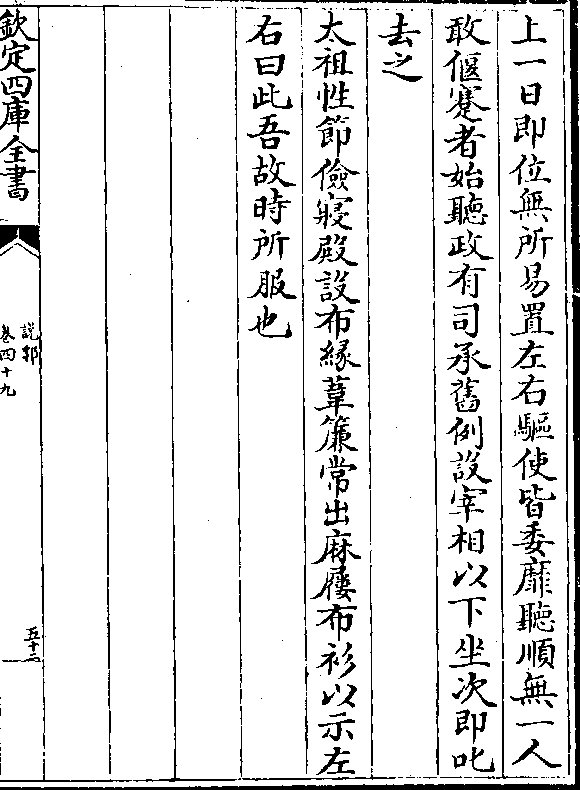 上一日即位無所易置左右驅使皆委靡聽順無一人
敢偃蹇者始聽政有司承舊例設宰相以下坐次即叱
去之
太祖性節儉寢殿設布緣葦簾常出麻屨布衫以示左
右曰此吾故時所服也
欽定四庫全書
說郛
卷四十九
五十二